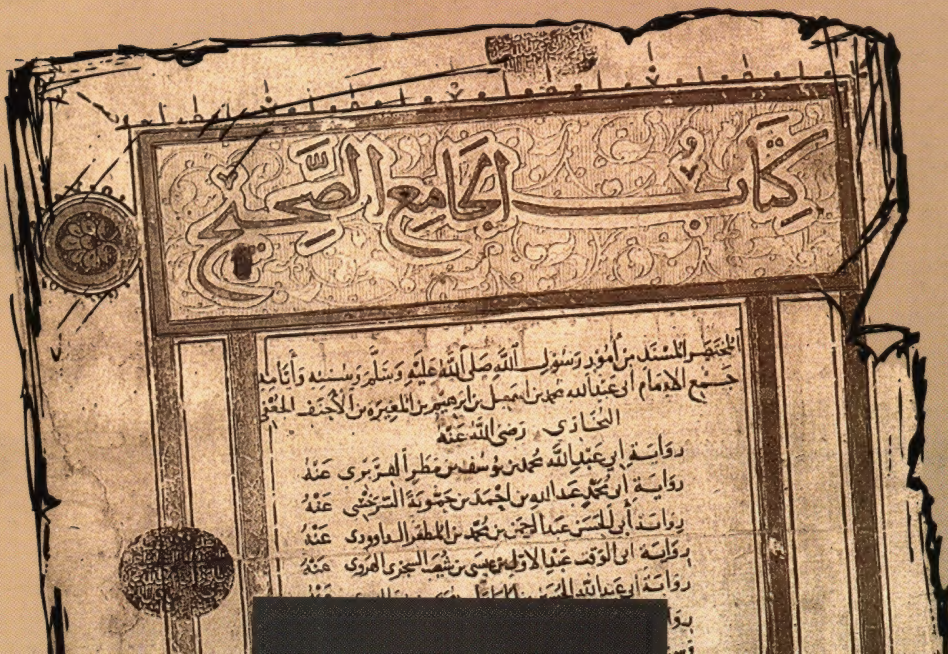 كتاب الجامع الصحيح
المختصر المسند من أمور رسول الله صلى الله عليه وسلم وسننه وأيامه
جمع الإمام أبي عبد الله محمد بن اسمعيل بن ابرهيم بن المغيرة بن الأحنف الجعفي
البخاري رضي الله عنه
رواية أبي عبد الله محمد بن يوسف بن مطر الفربري عنه
رواية أبي محمد عبد الله بن أحمد بن حمويه السرخسي عنه
رواية أبي الحسن عبد الرحمن بن محمد بن المظفر الداوودي عنه
رواية أبي الوقت عبد الأول بن عيسى بن شعيب السجزي الهروي عنه
رواية أبي عبد الله